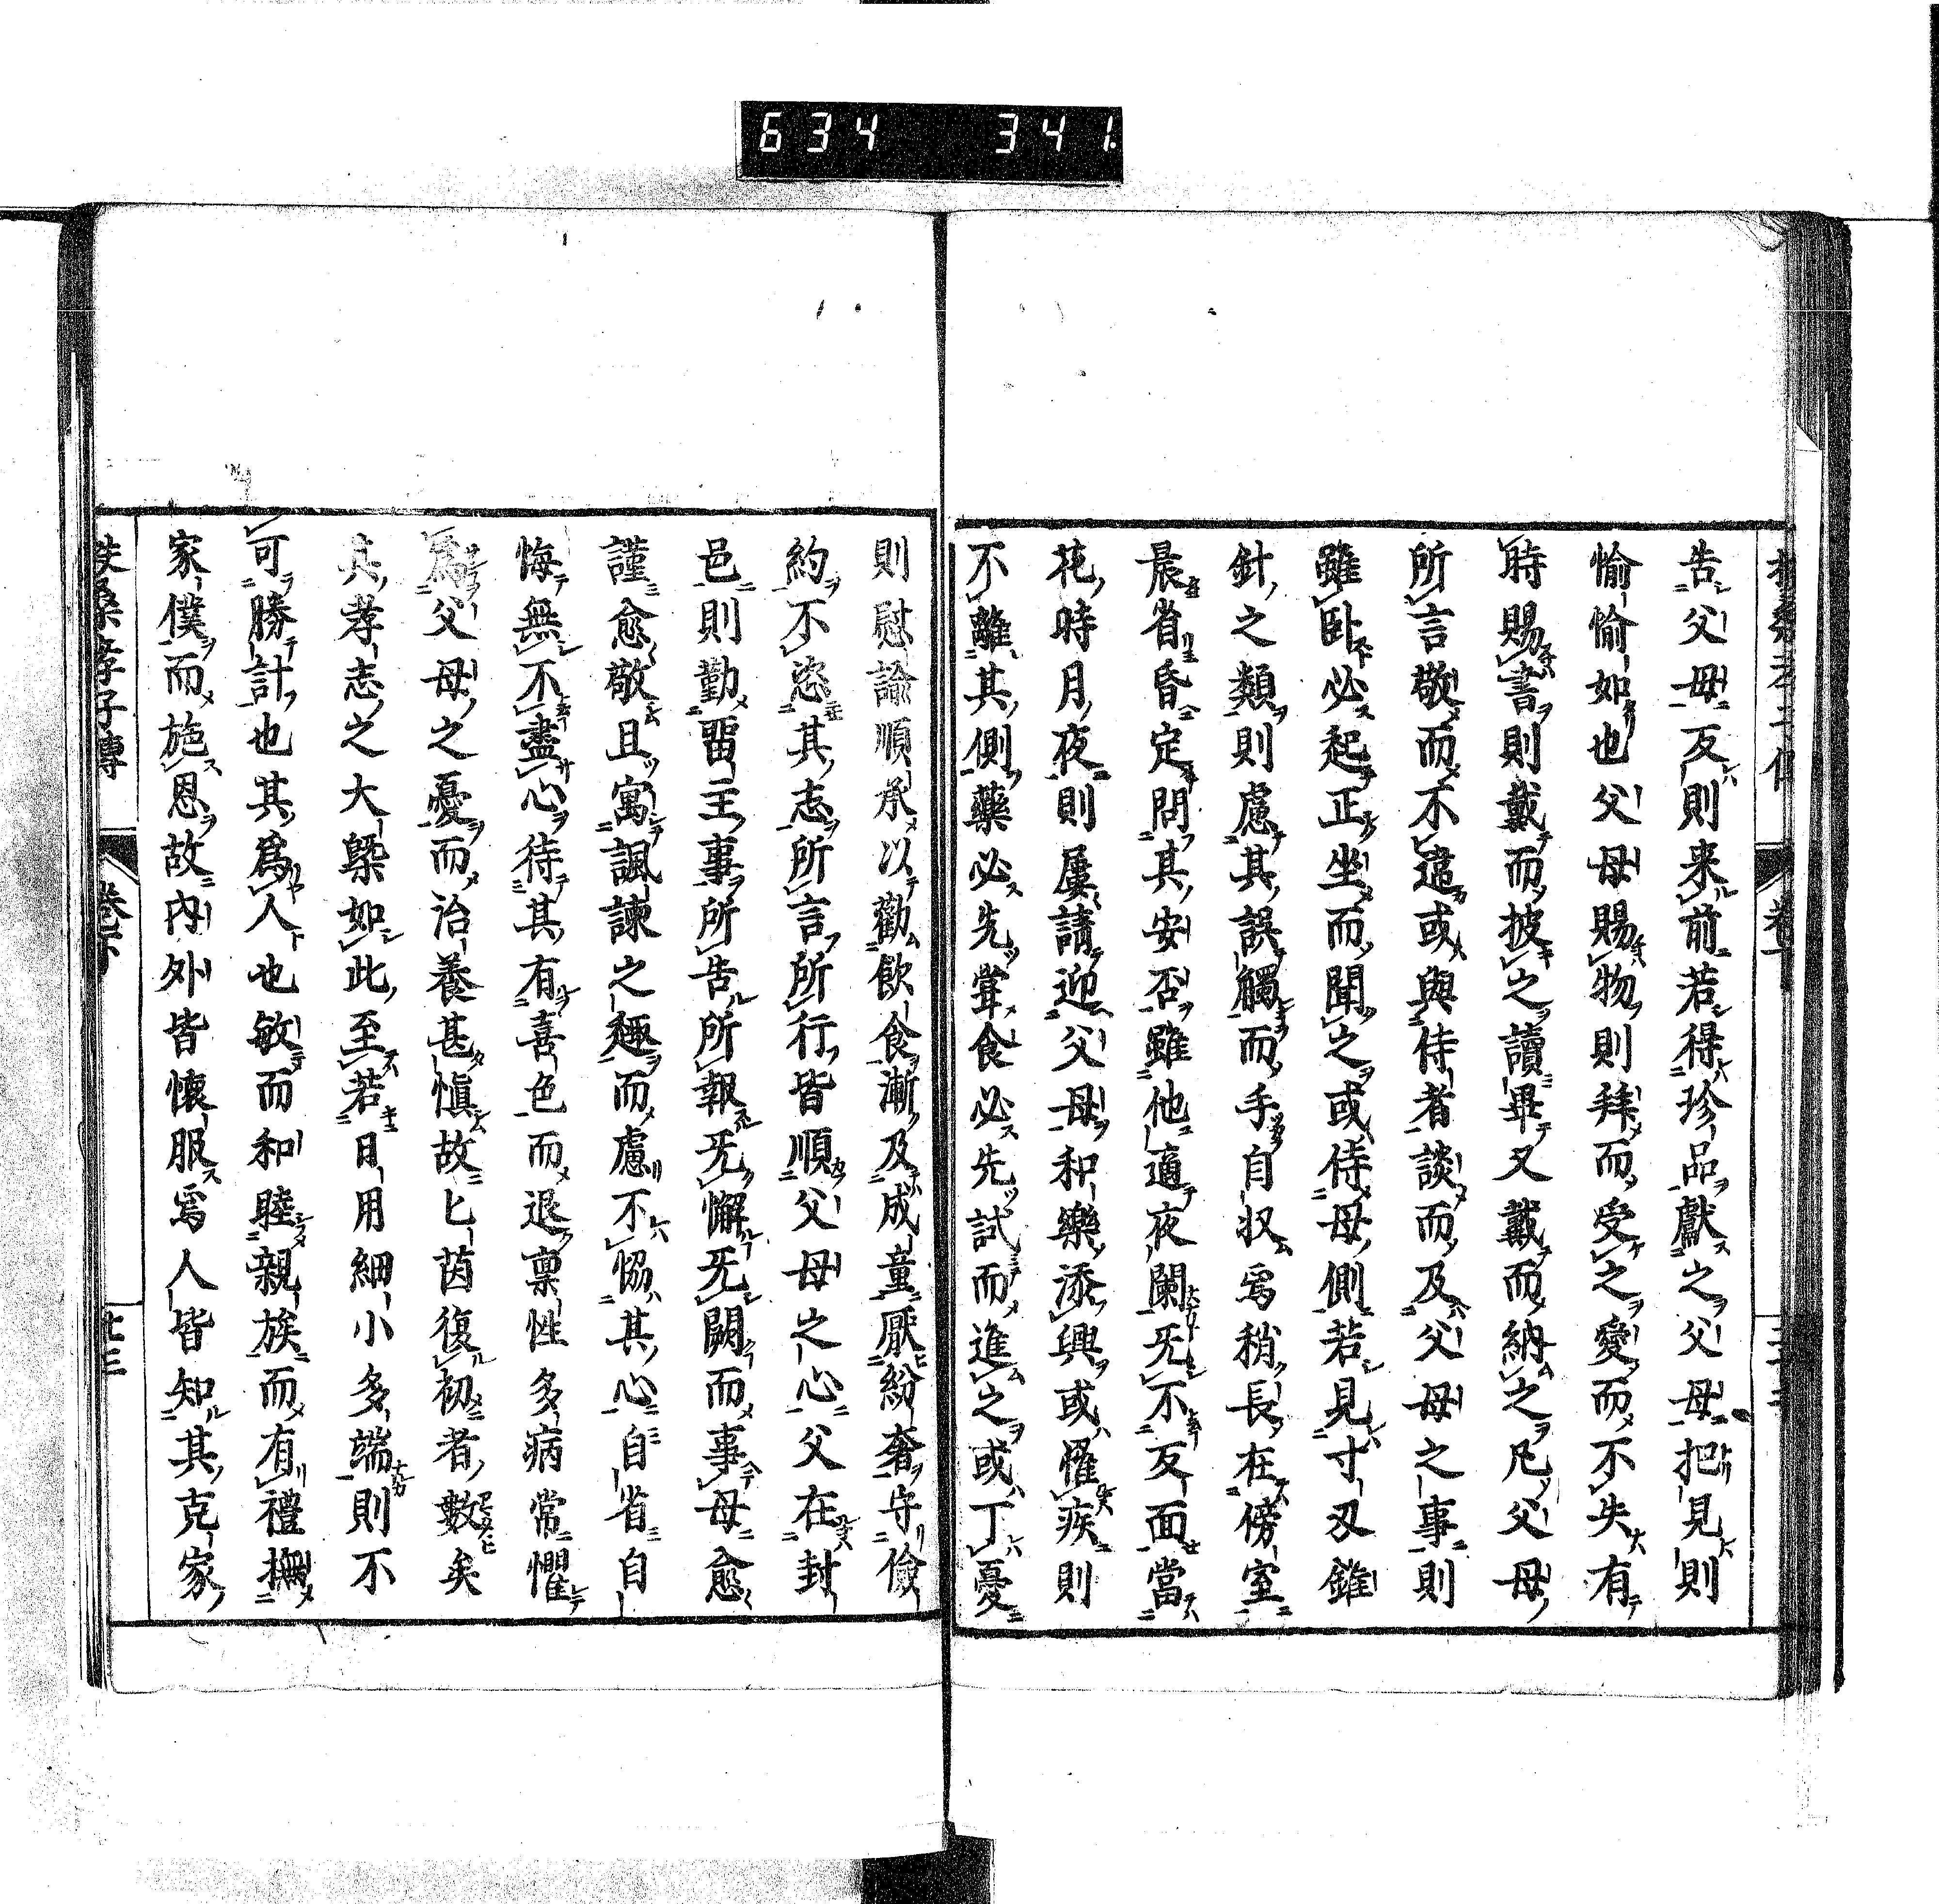 634 341
告父母反則来前若得珍品獻之父母把見則
愉愉如也父母賜物則拜而受之愛而不失有
時賜書則戴而披之讀畢又戴而納之凡父母
所言敬而不違或與侍者談而及父母之事則
雖臥必起正坐而聞之或侍母側若見寸刄錐
針之類則慮其誤觸而手自収焉稍長在傍室
晨省昏定問其安否雖他適夜闌旡不反面當
花時月夜則屢請迎父母和樂添興或罹疾則
不離其側藥必先甞食必先試而進之或丁憂
則慰諭順承以勸飲食漸及成童厭紛奢守儉
約不恣其志所言所行皆順父母之心父在封
邑則勤畱主事所告所報旡懈旡闕而事母愈
謹愈敬且寓諷諫之趣而慮不恊其心自省自
悔無不盡心待其有喜色而退禀性多病常懼
爲父母之憂而治養甚愼故匕茵復初者數矣
其孝志之大槩如此至若日用細小多端則不
可勝計也其爲人也敏而和睦親族而有禮撫
家僕而施恩故內外皆懷服焉人皆知其克家
扶桑孝子傳 卷下 廿三